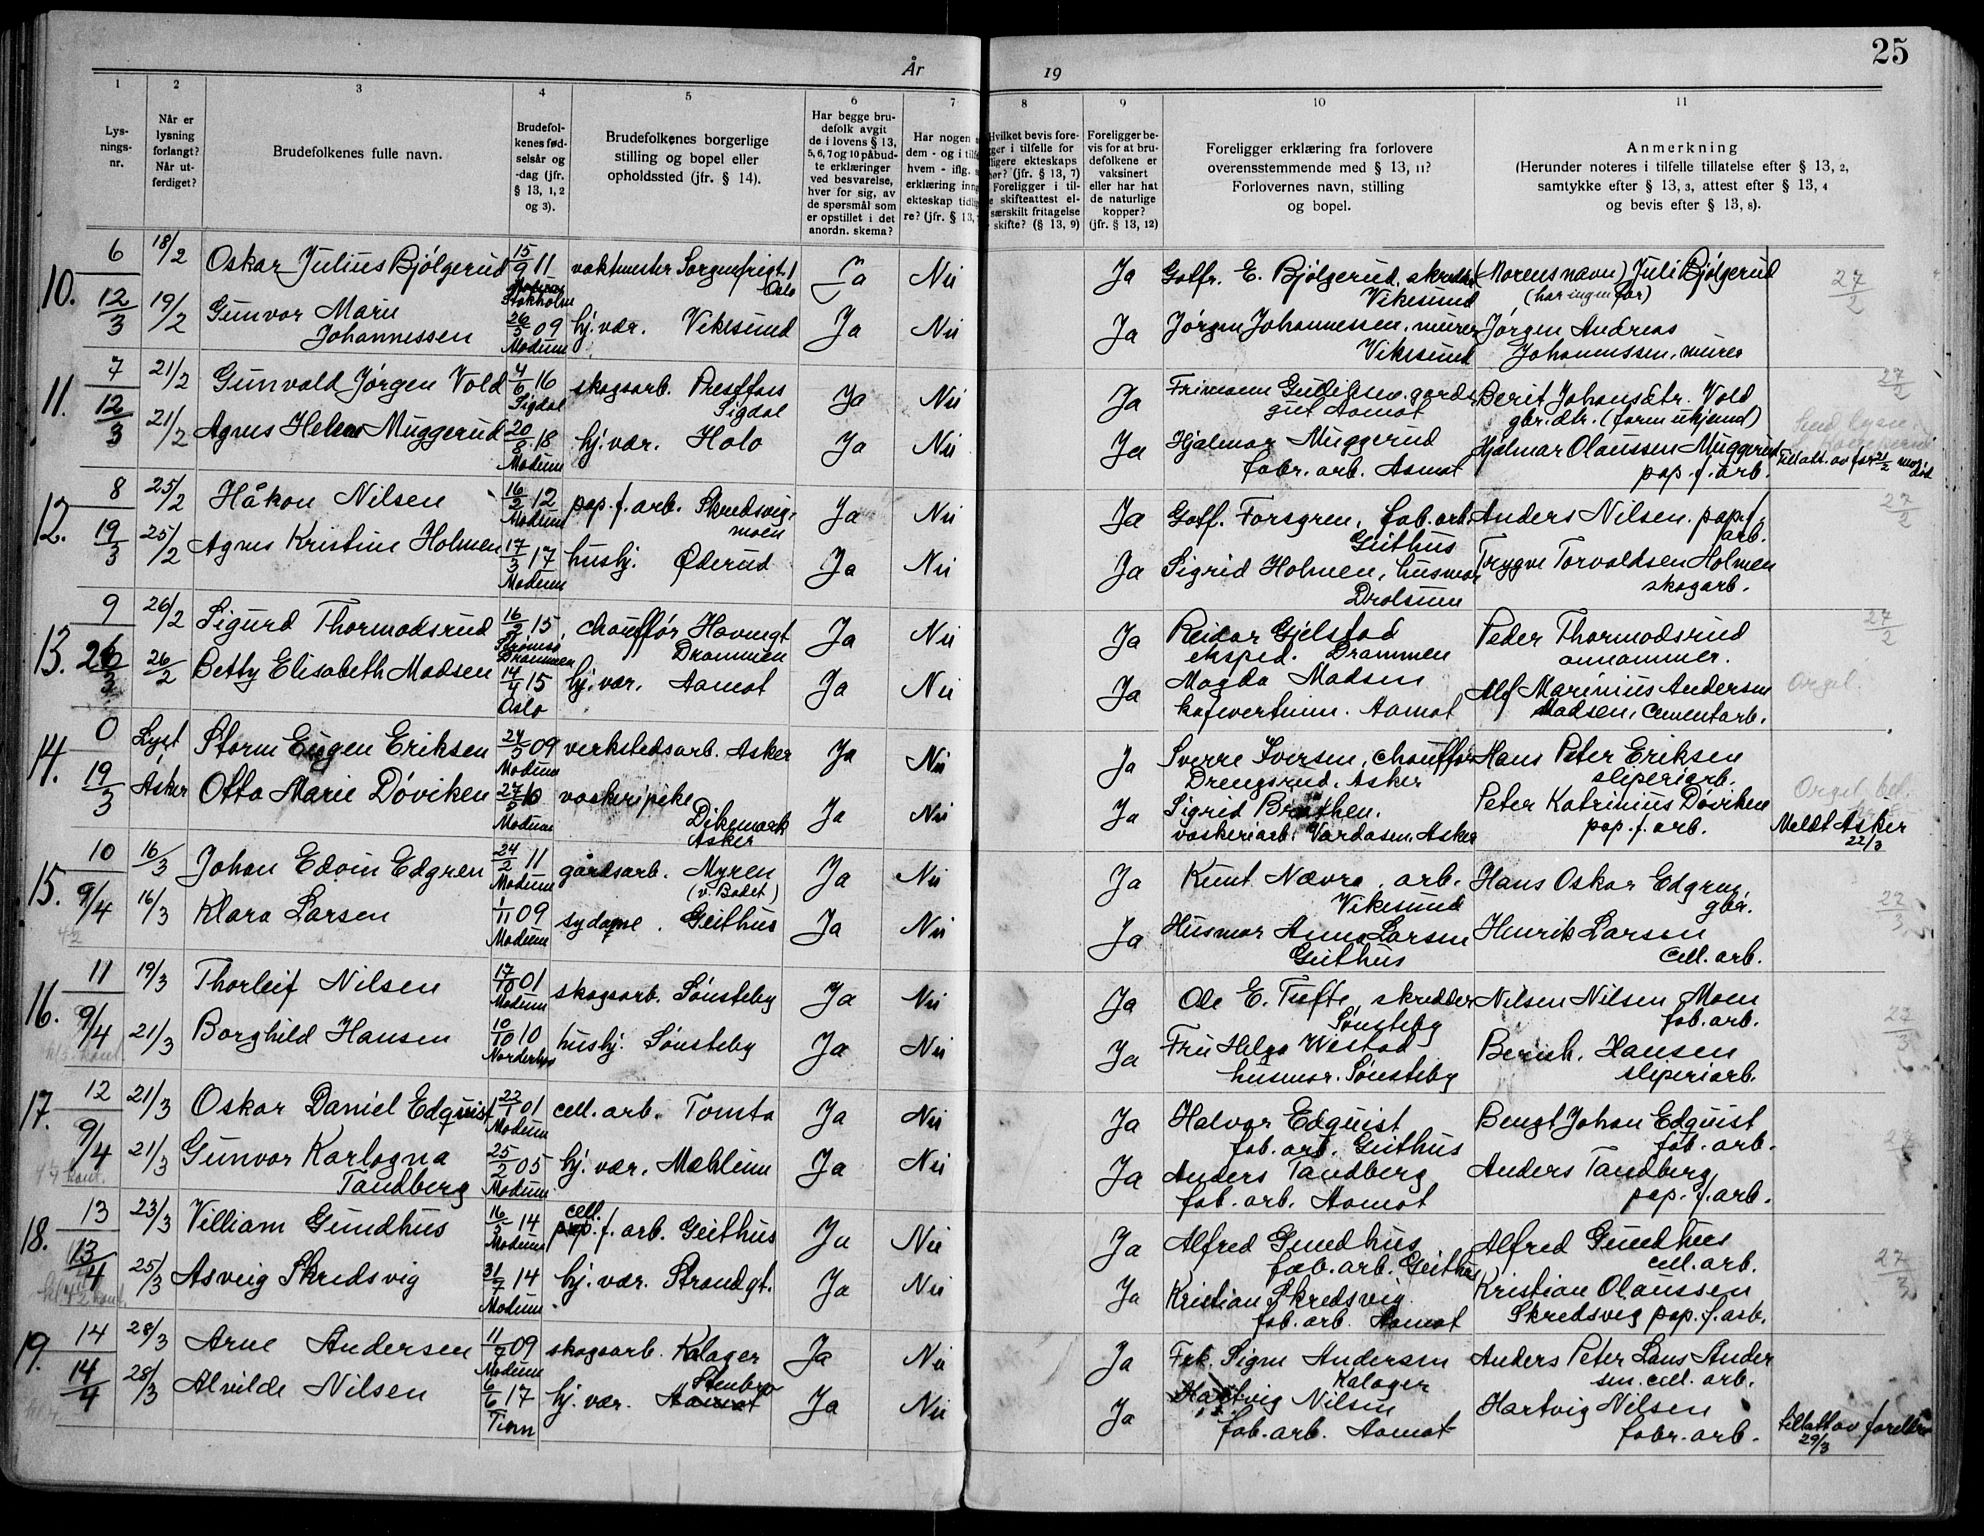 År 19
25
1 2 3 4 5 6 7 8 9 10 11
Lysningsnr.
Når er lysning forlangt? Når utferdiget?
Brudefolkenes fulle navn.
Brudefolkenes fødselsår og -dag (jfr. § 13, 1, 2 og 3).
Brudefolkenes borgerlige stilling og bopel eller opholdssted (jfr. § 14).
Har begge brudefolk avgit de i lovens § 13, 5, 6, 7 og 10 påbudte erklæringer ved besvarelse, hver for sig, av de spørsmål som er opstillet i det anordn. skema?
Har nogen
dem - og i tilf
hvem - iflg.
erklæring inng
ekteskap tidlig
re? (jfr. § 13,
Hvilket bevis fore-
ger i tilfelle for
ligere ekteskaps
hør? (jfr. § 13, 7)
Foreligger i til-
e skifteattest el-
særskilt fritagelse
skifte? (§ 13, 9)
Foreligger bevis for at brudefolkene er vaksinert eller har hat de naturlige kopper? (jfr. § 13, 12)
Foreligger erklæring fra forlovere overensstemmende med § 13, 11? Forlovernes navn, stilling og bopel.
Anmerkning
(Herunder noteres i tilfelle tillatelse efter § 13, 2, samtykke efter § 13, 3, attest efter § 13, 4 og bevis efter § 13, 8).
10. 6 18/2 Oskar Julius Bjølgerud 15/9 11 Stokholm vaktmester Sorgenfrigt. 1 Oslo Ja Nei Ja Gotfr. E. Bjølgerud, skredder Vikesund (Morens navn) Juli Bjølgerud (har ingen far) 27/2
12/3 19/2 Gunvor Marie Johannessen 26/2 09 Modum hj. vær. Vikesund Ja Nei Ja Jørgen Johannessen, murer Vikesund Jørgen Andreas Johannessen, murer
11. 7 21/2 Gunvald Jørgen Vold 4/6 16 Sigdal skogsarb. Presffoss Sigdal Ja Nei Ja Frimann Gulliksen gardsgut Aamot Berit Johansdtr. Vold gbr. dtr. (farm ukjend) 27/2
12/3 21/2 Agnes Helene Muggerud 20/8 18 Modum hj. vær. Holo Ja Nei Ja Hjalmar Muggerud fabr. arb. Aamot Hjalmar Olaussen Muggerud pap. f. arb. Tillatt. av far 21/2 mor død
12. 8 25/2 Håkon Nilsen 16/2 12 Modum pap. f. arb. Skredsvigmoen Ja Nei Ja Gotf. Forsgren, fab. arb. Geithus Anders Nilsen. pap. f. arb. 27/2
19/3 25/2 Agnes Kristine Holmen 17/3 17 Modum hushj. Øderud Ja Nei Ja Sigrid Holmen, husmor Drolsum Trygve Torvaldsen Holmen skogarb.
13. 9 26/2 Sigurd Thormodsrud 16/2 15 Strømsø Drammen chauffør Havnegt Drammen Ja Nei Ja Reidar Gjelstad eksped. Drammen Peder Thormodsrud annammer. 27/2
26/3 26/2 Betty Elisabeth Madsen 14/4 15 Oslo hj. vær. Aamot Ja Nei Ja Magda Madsen kafevertinne. Aamot Alf Marinius Andersen Madsen, cementarb. Orgel.
14. 0 Lyst Asker Storm Eugen Eriksen 24/5 09 Modum verkstedsarb. Asker Ja Nei Ja Sverre Iversen, chauffør Drengsrud, Asker Hans Peter Eriksen sliperiarb.
19/3 Otta Marie Døviken 27/2 10 Modum vaskeripike Dikemark Asker Ja Nei Ja Sigrid Braathen. vaskeriarb. Vardåsen, Asker Peter Katrinius Døviken pap. f. arb. Orgel, bel. Meldt Asker 22/3
15. 10 16/3 Johan Edvin Edgren 24/2 11 Modum gårdsarb. Myren (v. Badet) Ja Nei Ja Knut Nævra, arb. Vikesund Hans Oskar Edgren, gbr. 27/3
9/4 16/3 Klara Larsen 1/11 09 Modum sydame. Geithus Ja Nei Ja Husmor Anna Larsen Geithus Henrik Larsen cell. arb.
16. 11 19/3 Thorleif Nilsen 17/10 01 Modum skogsarb. Sønsteby Ja Nei Ja Ole E. Tufte, skredder Sønsteby Nilsen Nilsen Moen fab. arb. 27/3
9/4 21/3 Borghild Hansen 10/10 10 Norderhov hushj. Sønsteby Ja Nei Ja Fru Helga Westad husmor. Sønsteby Bernh. Hansen sliperiarb.
17. 12 21/3 Oskar Daniel Edquist 22/1 01 Modum cell. arb. Tomta Ja Nei Ja Halvor Edquist fab. arb. Geithus Bengt Johan Edquist fab. arb. 27/3
9/4 21/3 Gunvor Karlagna Tandberg 25/2 05 Modum hj. vær. Mæhlum Ja Nei Ja Anders Tandberg fab. arb. Aamot Anders Tandberg pap. f. arb.
18. 13 23/3 Villiam Gundhus 16/2 14 Modum cell. f. arb. Geithus Ja Nei Ja Alfred Gundhus fab. arb. Geithus Alfred Gundhus cell. arb. 27/3
13/4 25/3 Asveig Skredsvig 31/7 14 Modum hj. vær. Strandgt. Ja Nei Ja Kristian Skredsvig fab. arb. Aamot Kristian Olaussen Skredsvig pap. f. arb.
19. 14 28/3 Arne Andersen 11/7 09 Modum skogsarb. Kalager Ja Nei Ja Frk. Signe Andersen Kalager Anders Peter Laus Andersen. cell. arb.
14/4 28/3 Alvilde Nilsen 6/6 17 Tinn hj. vær. Stenbro Aamot Ja Nei Ja Hartvig Nilsen fab. arb. Aamot Hartvig Nilsen fabr. arb. tillatt av foreldre 29/3